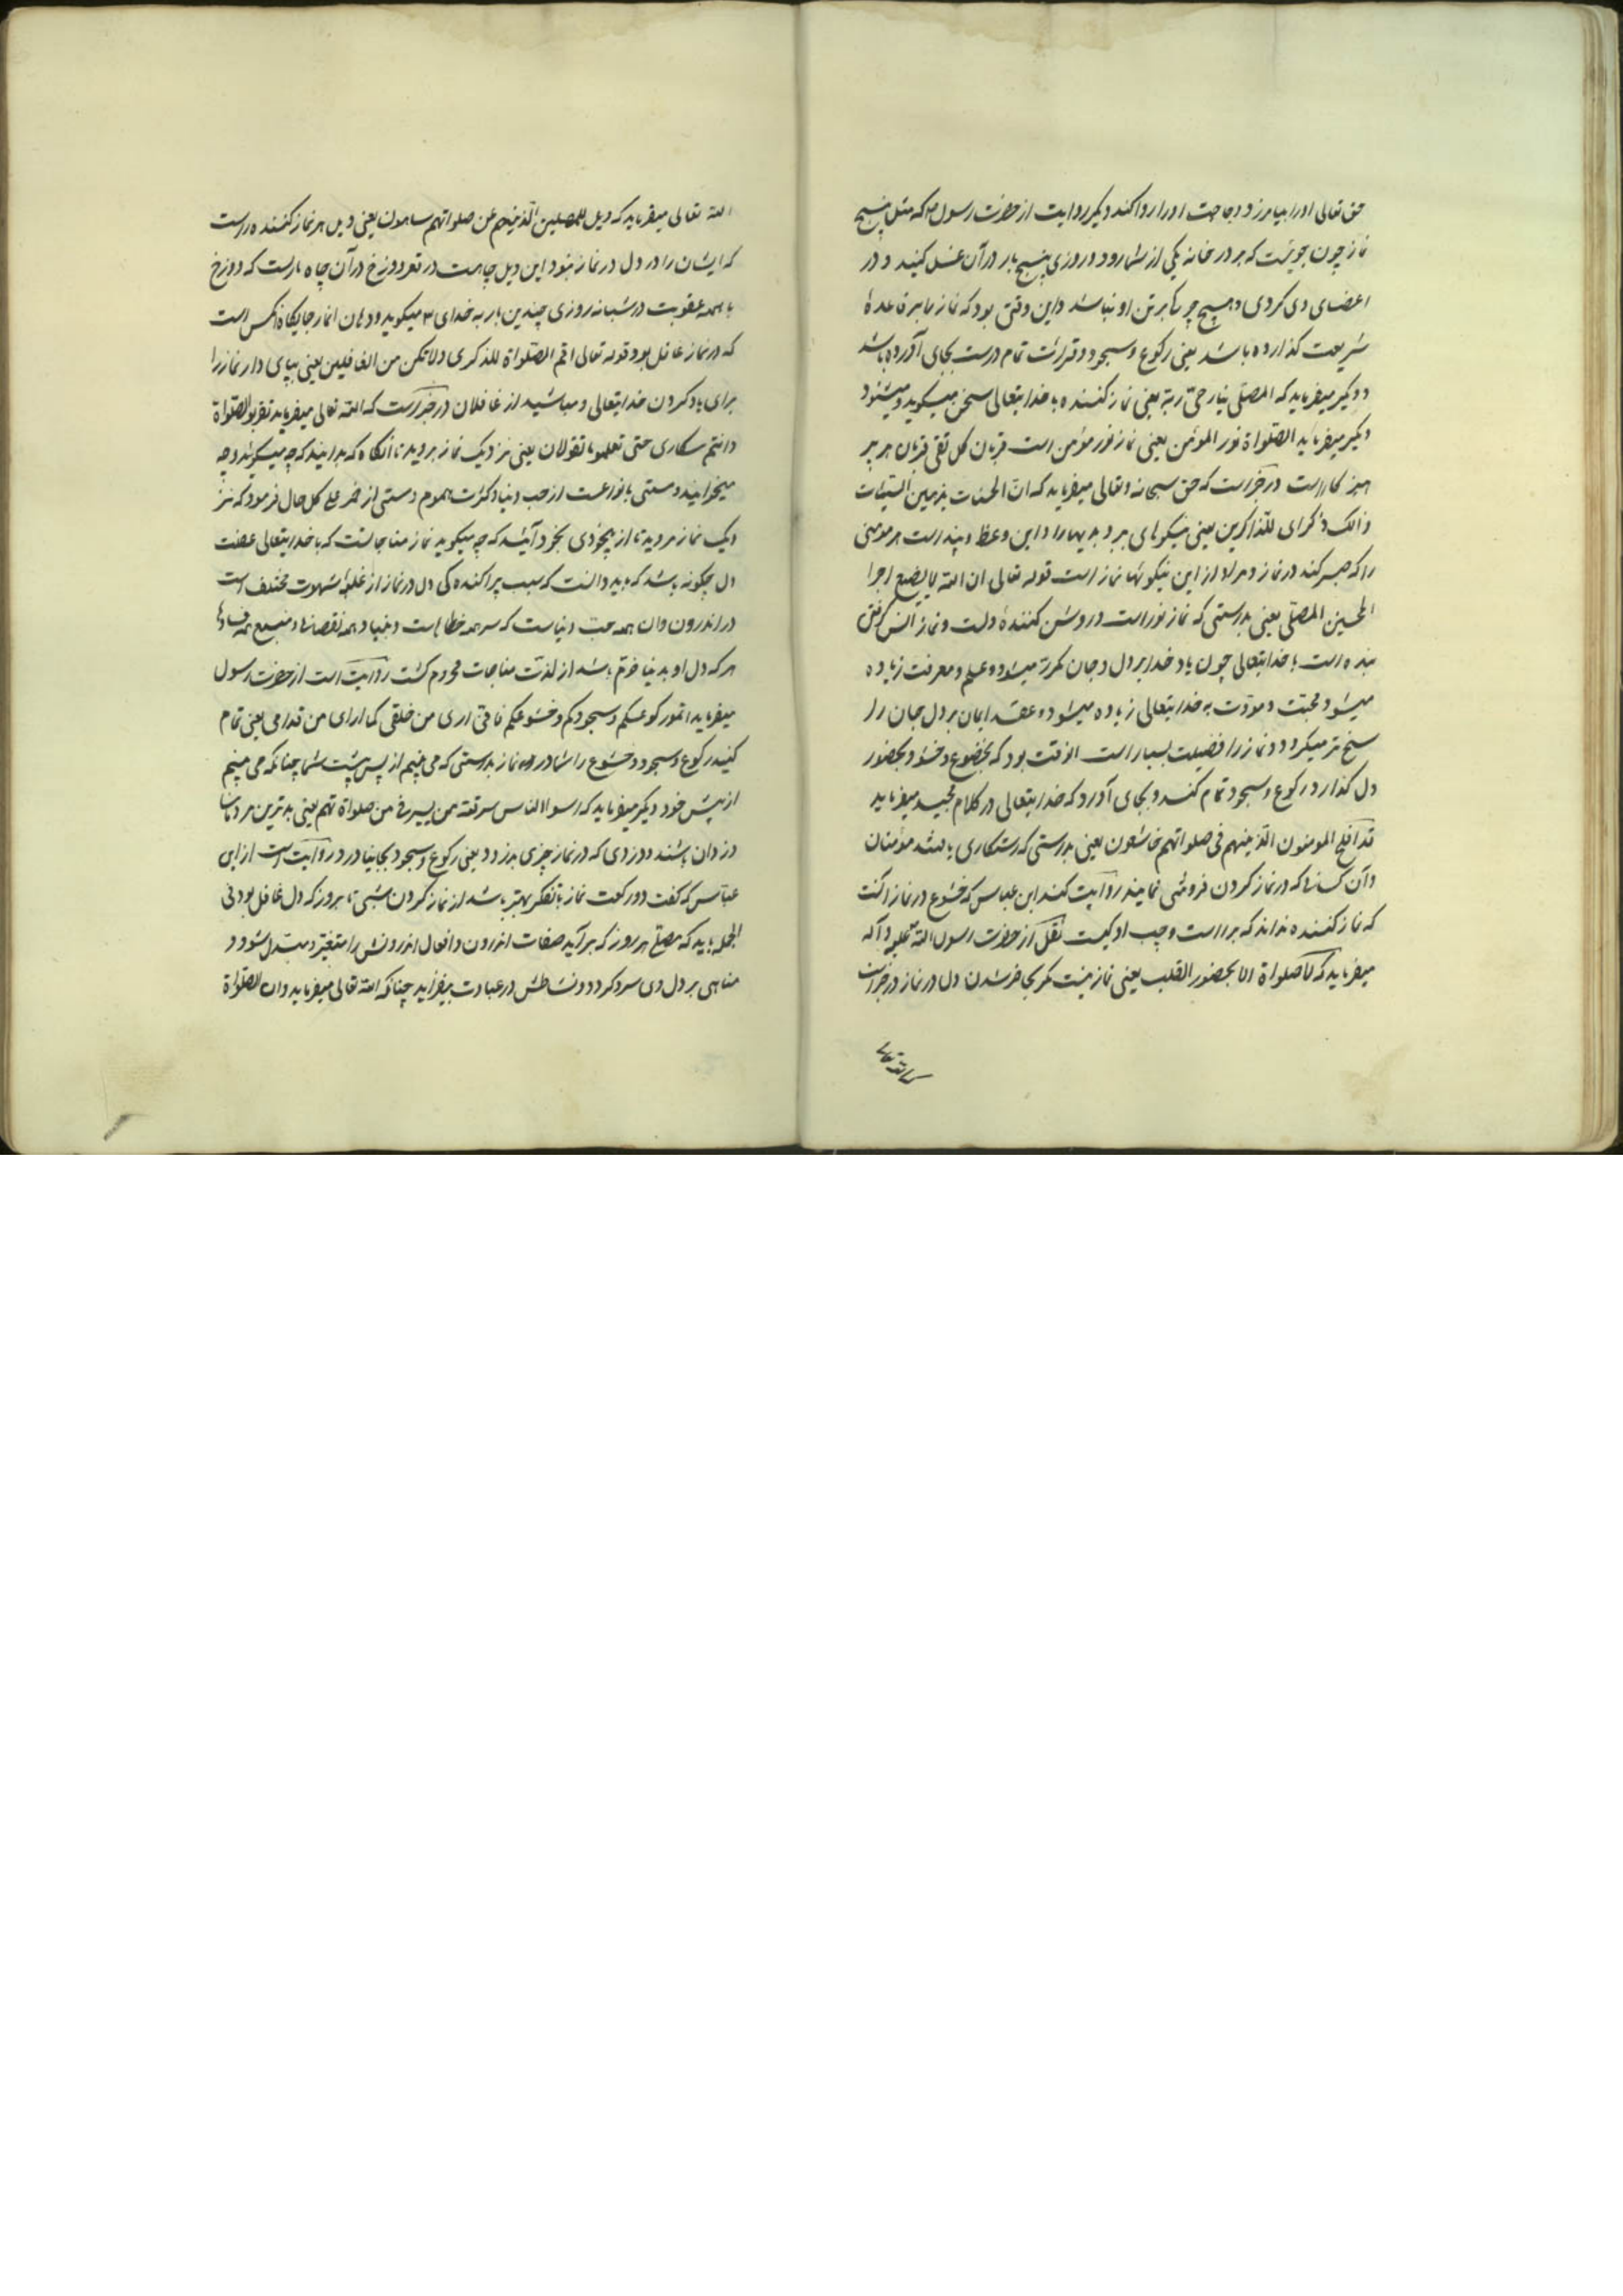 حق تعالی اورا بیامرزد و حاجت اورا روا کند دیگر روایت از حضرت رسول که مثل پنج
نماز چون جویست که بر در خانه یکی از شما رود و روزی پنج بار در آن غسل کنید و در
اعضای وی کردی و هیچ چرک بر تن او نباشد و این وقتی بود که نماز ما بر قاعدهٔ
شریعت کذارده باشد یعنی رکوع و سجود و قرائت تمام درست بجای آورده باشد
و دیگر میفرماید که المصلی یناجی ربه یعنی نماز کننده با خدایتعالی سخن میگوید و میشنود
دیگر میفرماید الصلواة نور المؤمن یعنی نماز نور مؤمن است قربان کل تقی قربان هر پر
هیز کار است در خبر است که حق سبحانه و تعالی میفرماید که ان الحسنات یذهبن السیئات
ذالک ذکرای للذاکرین یعنی نیکوهای ببرد بدیهارا و این وعظ و پند است هر مومنی
را که صبر کند در نماز و مراد از این نیکوئها نماز است قوله تعالی ان الله لا یضیع اجرا
المحسنین المصلی یعنی بدرستی که نماز نور است و روشن کنندهٔ دلست و نماز انس کرفتن
بنده است با خدایتعالی چون یاد خدا بر دل و جان مکرر میشود و علم و معرفت زیاده
میشود محبت و مودت به خدایتعالی زیاده میشود و عقد ایمان بر دل جان را
سخ تر میکردد و نماز را فضیلت بسیار است انوقت بود که بخضوع و خشو و بحضور
دل کذارد و رکوع و سجود تمام کند و بجای آورد که خدایتعالی در کلام مجید میفرماید
قد افلح المومنون الذینهم فی صلواتهم خاشعون یعنی بدرستی که رستکاری یافتند مؤمنان
و آن کسانها که در نماز کردن فروتنی نمایند روایت کند ابن عباس که خشوع در نماز انست
که نماز کننده نداند که بر راست و چپ او کیست نقل از حضرت رسول الله علیه و آله
میفرماید که لا صلواة الا بحضور القلب یعنی نماز نیست مکر بحاضر شدن دل در نماز در خبر است
که الله تعالی
الله تعالی میفرماید که ویل للمصلین الذینهم عن صلواتهم ساهون یعنی ویل هر نماز کننده راست
که ایشان را در دل در نماز نبود این ویل چاهست در قعر دوزخ در آن چاه مارست که دوزخ
با همه عقوبت در شبانه روزی چندین بار به خدای میگوید و دهان انمار جایگاه انکس است
که در نماز غافل بود قوله تعالی اقم الصلواة للذکری ولا تکن من الغافلین یعنی بپای دار نماز را
برای یاد کردن خدایتعالی و مباشید از غافلان در خبر است که الله تعالی میفرماید تقربو الصلواة
و انتم سکاری حتی تعلموا ما تقولان یعنی نزدیک نماز بروید تا آنکاه که بدانید که چه میکوئید و چه
میخوانید و مستی بانواعست از حب دنیا و کثرت هموم و مستی از خمر علی کل حال فرمود که نز
دیک نماز مروید تا از بیخودی بخود آئید که چه میگوید نماز مناجاتست که با خدایتعالی غفلت
دل چکونه باشد که باید دانست که سبب پراکنده کی دل در نماز از غلبهٔ شهوت مختلف است
در اندرون وان همه حب دنیاست که سر همه خطاهاست و بنیاد همه نقصانها و منبع همه فسادها
هر که دل او بدنیا خرم باشد از لذت مناجات محروم کشت روایت است از حضرت رسول
میفرماید اتموا رکوعکم و سجودکم و خشوعکم فانی اری من خلفی کما ارای من قدامی یعنی تمام
کنید رکوع و سجود و خشوع را شما در نماز بدرستی که می بینم از پس پشت شما چنانکه می بینم
از پیش خود دیگر میفرماید که اسوا الناس سرقته من یسرق من صلواة تهم یعنی بدترین مردمان
دزدان باشند دوزدی که در نماز چیزی بدزدد یعنی رکوع و سجود بجا نیاورد و روایت است از ابن
عباس که کفت دو رکعت نماز با تفکر بهتر باشد از نماز کردن شبی تا بروز که دل غافل بود فی
الجمله باید که مصلی هر روز که برآید صفات اندرون و افعال اندرونش را متغیر و مبتدل شود و
مناهی بر دل وی سرد کردد و نشاطش در عبادت بیفزاید چنانکه الله تعالی میفرماید و ان الصلواة